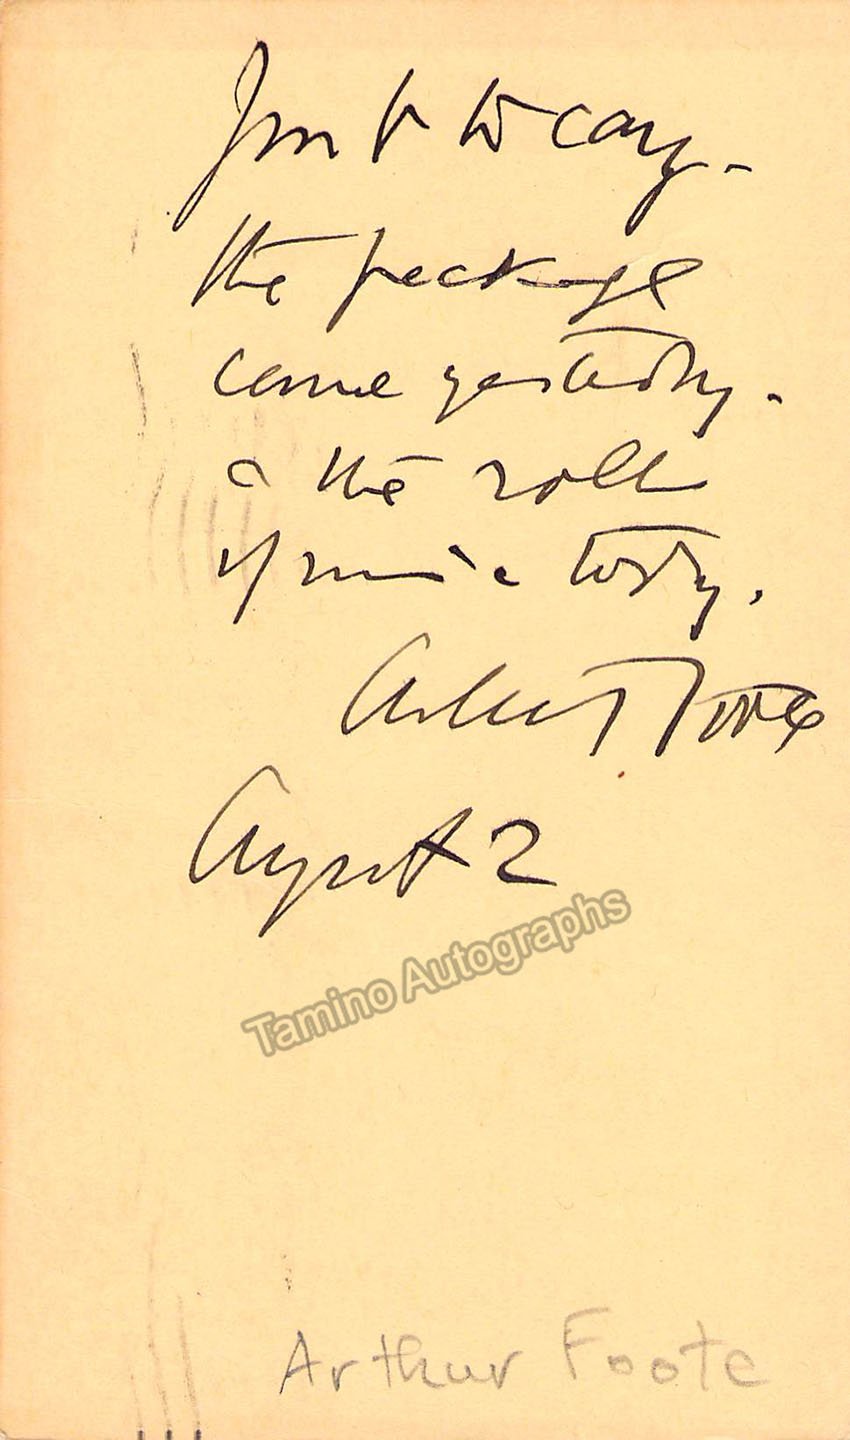 Just to say -
the package
came yesterday.
& the roll
of music today.
Arthur Foote
August 2
Tamino Autographs
Arthur Foote